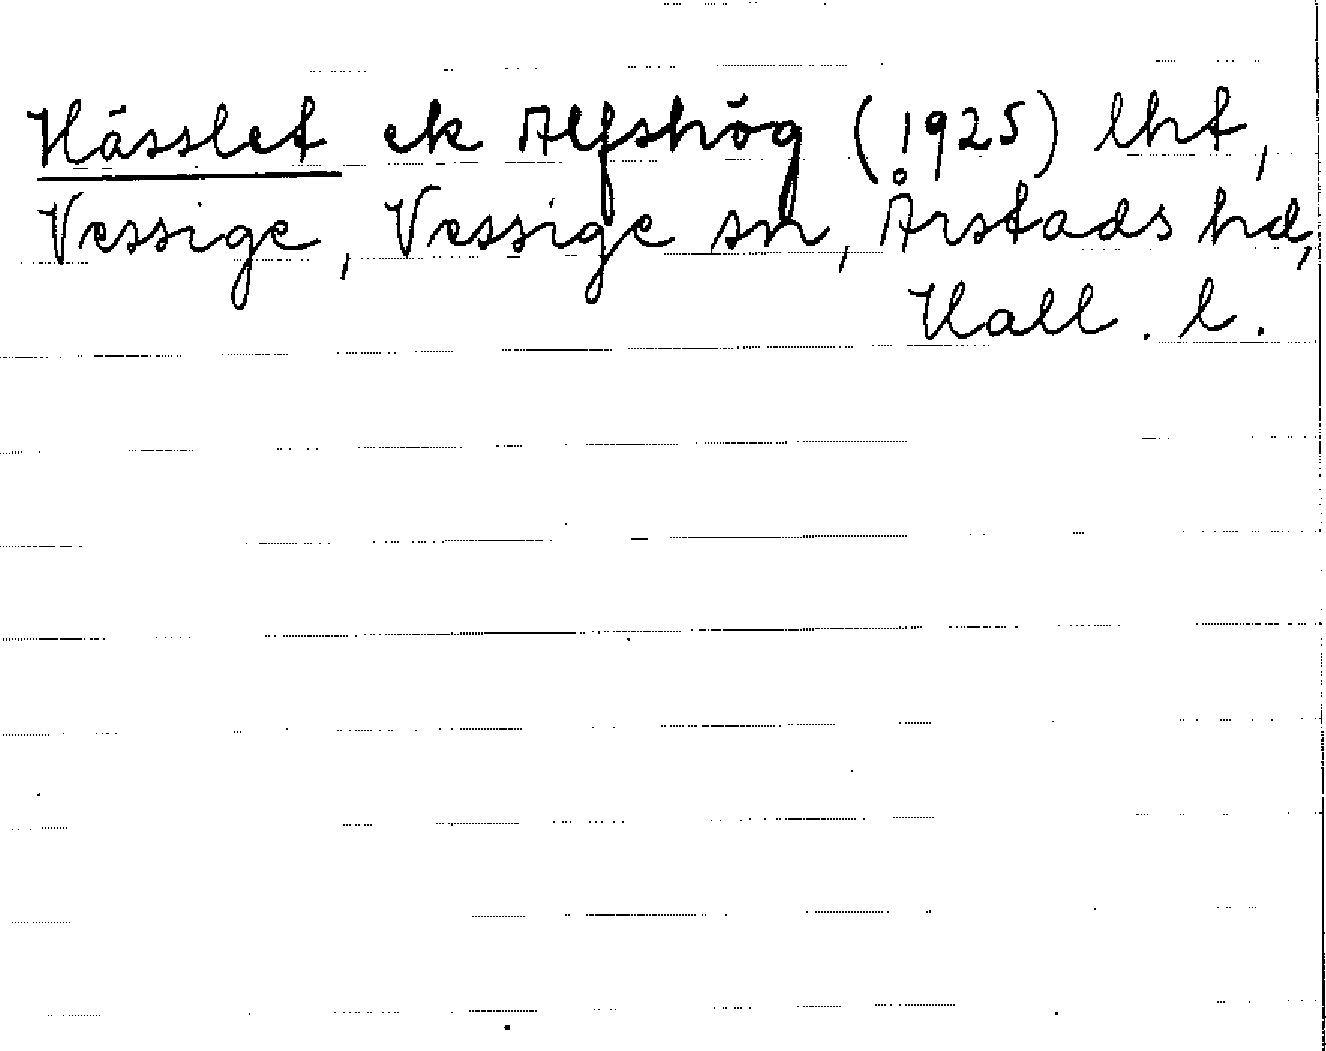 Hässlet ek Alfshög (1925) lht,
Vessige, Vessige sn, Årstads hd,
Hall. l.